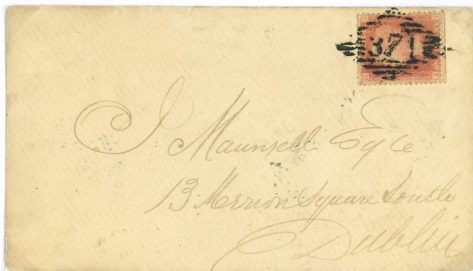 371
J Maunsell Esqre
13 Merrion Square South
Dublin